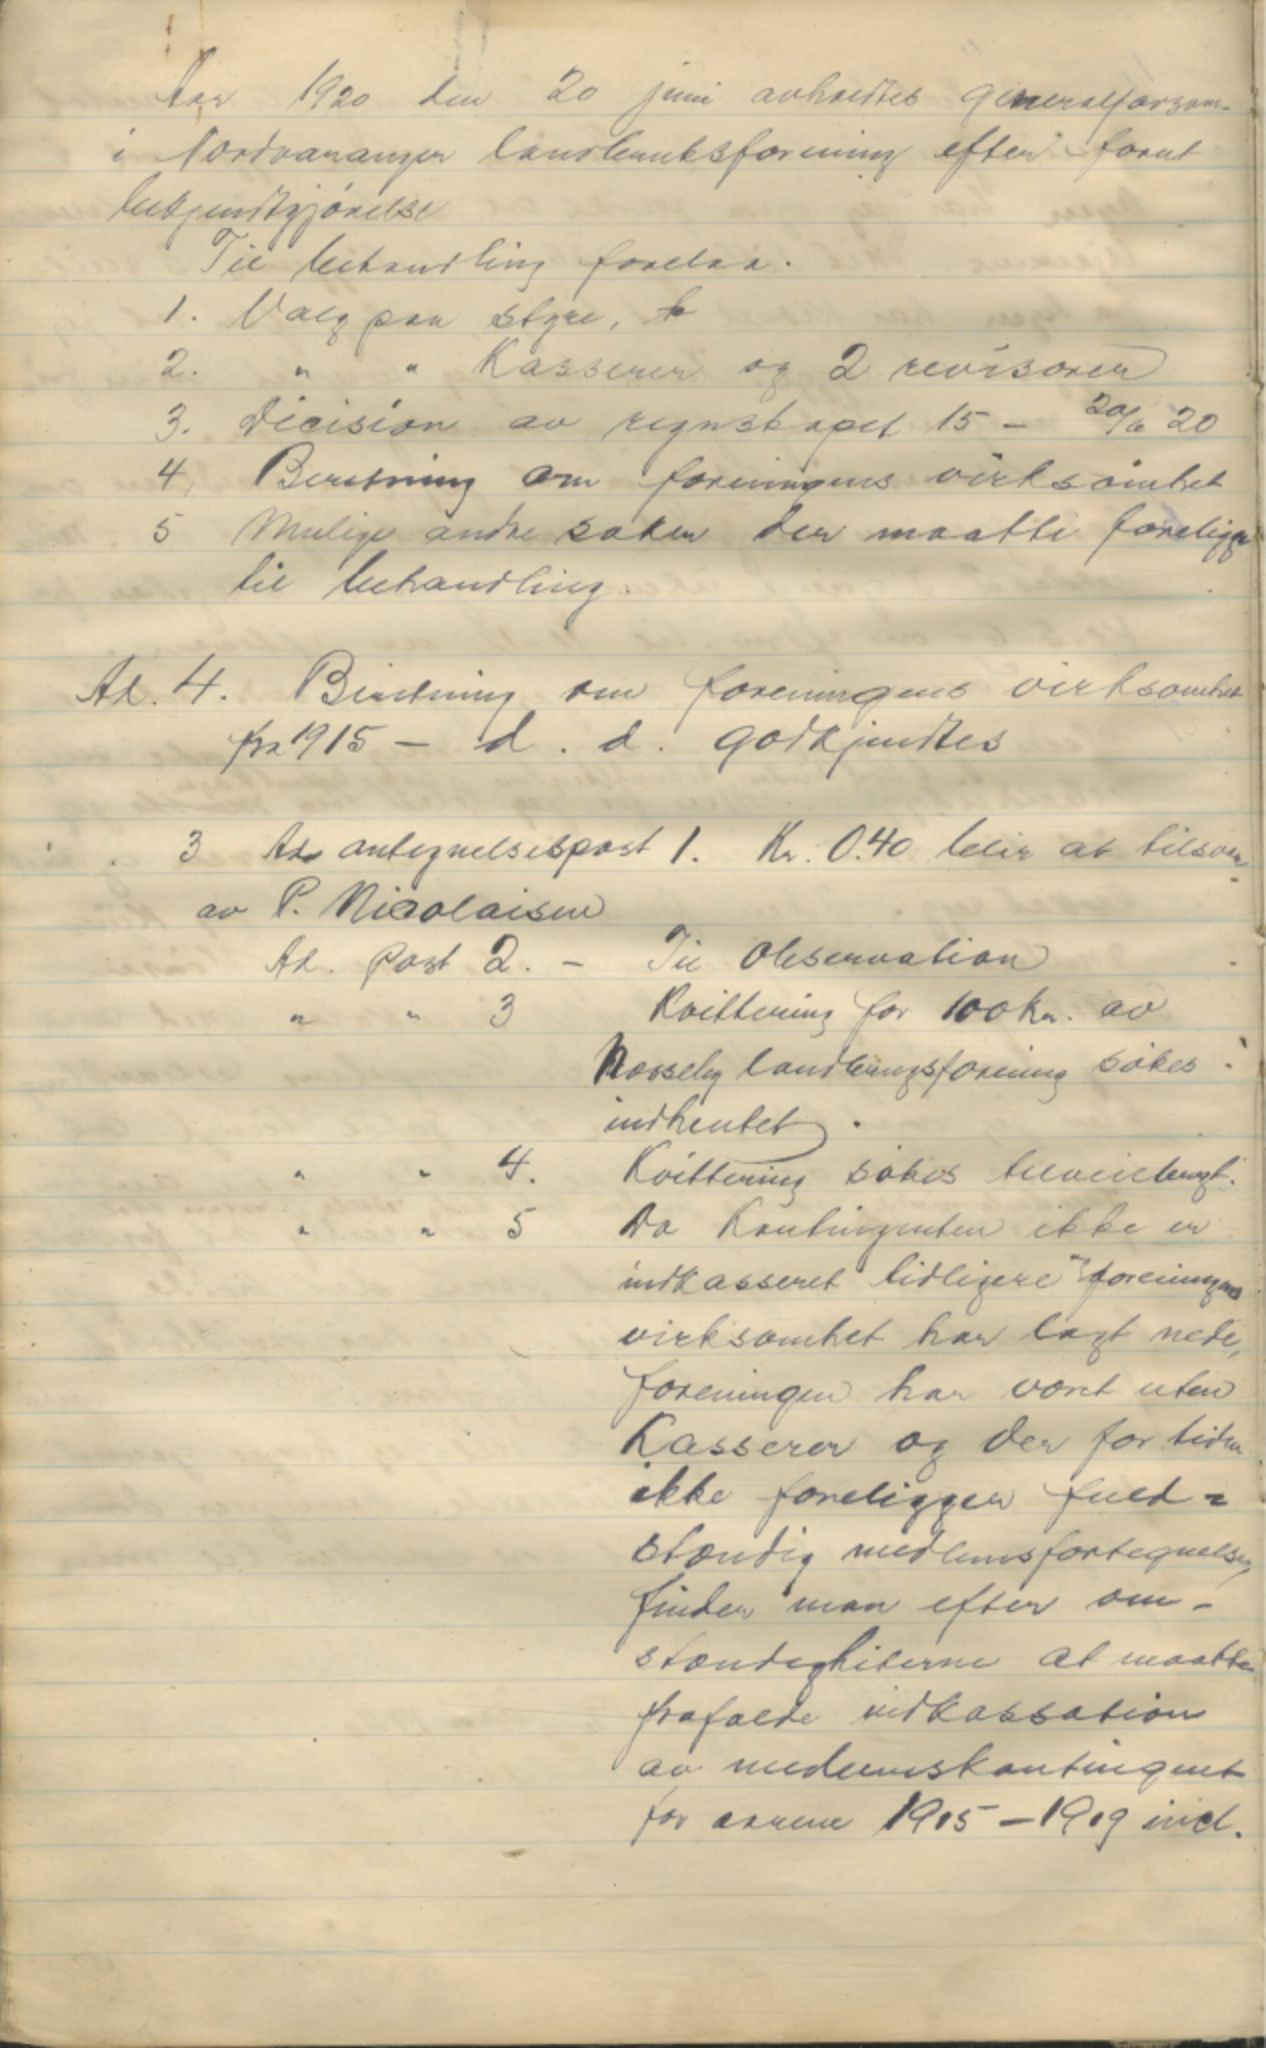 Aar 1920 den 20 juni avholdtes generalforsam-
i Nordvaranger landbruksforening efter forut
bekjendtgjörelse
Til behandling forelaa.
1. Valg paa styre,
2. " " Kasserer og 2 revisorer
3. Dicision av regnskapet 15 - 20/6 20
4. Beretning om foreningens virksomhet
5 Mulige andre saker der maatte foreligge
til behandling.
Ad. 4. Beretning om foreningens virksomhet
fra 1915 - d. d. godkjendtes
3 Ad antegnelsespost 1. Kr. 0.40 blir at tilsvare
av P. Nicolaisen
Ad. post 2. - Til Observation
" " 3 Kvittering for 100 kr. av
landbrugsforening sökes
indhentet.
" " 4. Kvittering sökes tilveiebragt.
" " 5 Da Kontingenten ikke er
indkasseret tidligere og foreningens
virksomhet har lagt nede,
foreningen har været uten
Kasserer og der for tiden
ikke foreligger fuld=
stændig medlemsfortegnelse,
finder man efter om-
stændigheterne at maatte
frafalde indkassation
av medlemskontingent
for aarene 1915-1919 incl.